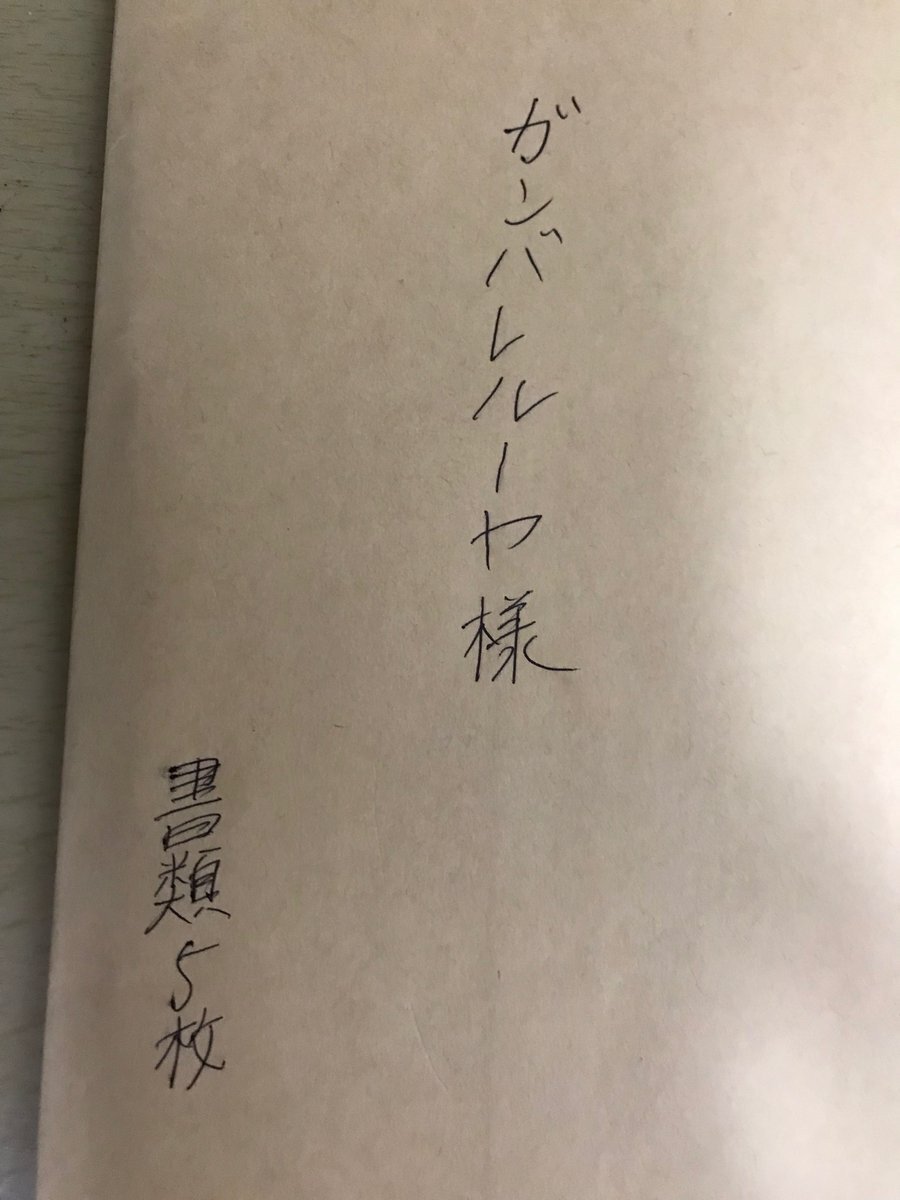 ガンバレルーヤ様
書類5枚